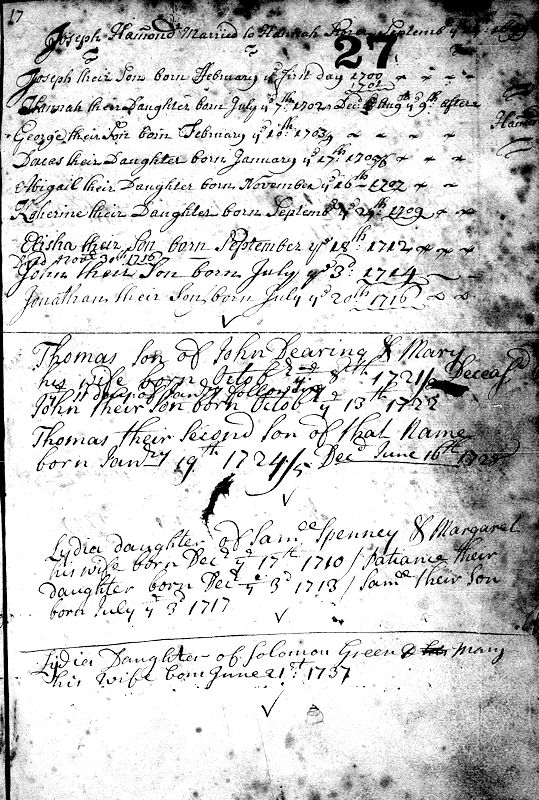 17
Joseph Hamond Married to Hannah Septemb
27
Joseph their Son born February yᵉ first day 1700
1701
Hannah their Daughter born July yᵉ 1702 Decᵈ Augᵗ yᵉ 9ᵗʰ after
Hamon
George their Son born February yᵉ 10ᵗʰ 1703/4
Dorcas their Daughter born January yᵉ 17ᵗʰ 1705/6
Abigail their Daughter born November yᵉ 16ᵗʰ 1707
Katherine their Daughter born Septemb yᵉ 29ᵗʰ 1709
Elisha their Son born September yᵉ 18ᵗʰ 1712
Died Novʳ 30ᵗʰ 1716
John their Son born July yᵉ 3ᵈ 1714
Jonathan their Son born July yᵉ 20ᵗʰ 1716
Thomas Son of John Dearing & Mary
his wife born Octobʳ yᵉ 8ᵗʰ 1721/ Deceasᵈ
day of Janʳʸ following
John their Son born Octobʳ yᵉ 13ᵗʰ 1722
Thomas their Second Son of that Name
born Janʳʸ 19ᵗʰ 1724/5 Decᵈ June 16ᵗʰ 1725
Lydia daughter of Samˡˡ Spenney & Margaret
his wife born Decʳ yᵉ 17ᵗʰ 1710 / Patiance their
daughter born Decʳ yᵉ 3ᵈ 1713 / Samˡˡ their Son
born July yᵉ 3ᵈ 1717
Lydia Daughter of Solomon Green & Mary
his Wife born June 21ˢᵗ 1737